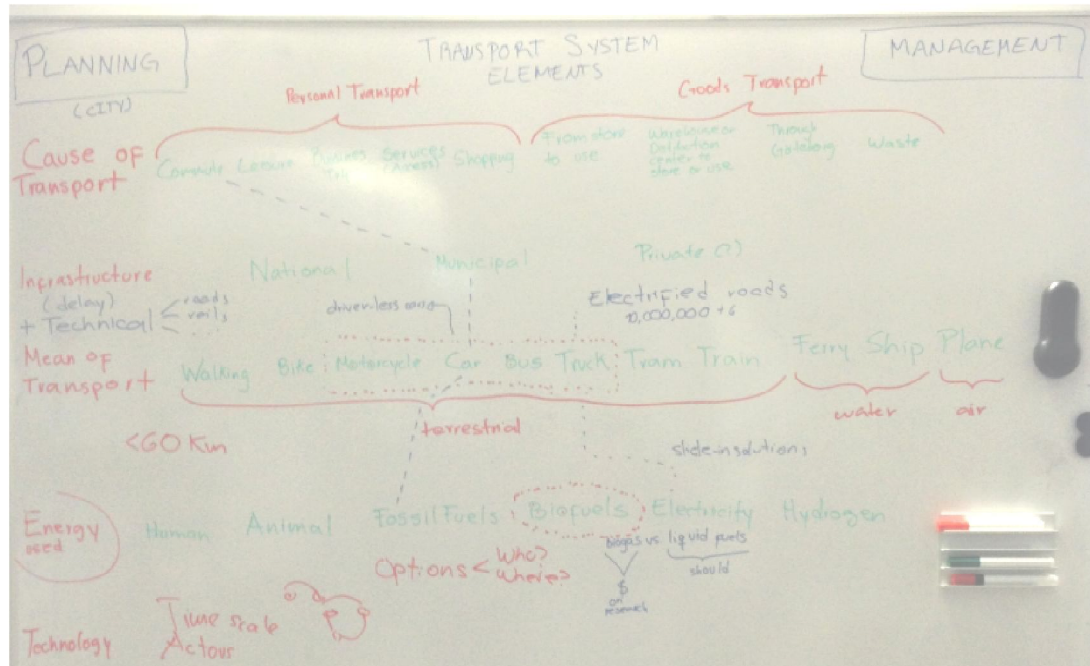 PLANNING
(CITY)
TRANSPORT SYSTEM
ELEMENTS
MANAGEMENT
Personal Transport
Goods Transport
Cause of
Transport
Commute Leisure Services
(Access) Shopping
From store
to use
Warehouse or
center to
store or use
Through
Waste
Infrastructure
(delay)
+ Technical
roads
rails
...
National
Municipal
Private (?)
driverless cars
Electrified roads
10,000,000 +6
Mean of
Transport
Walking Bike Motorcycle Car Bus Truck Tram Train Ferry Ship Plane
terrestrial
water
air
<60 Km
slide-in solutions
Energy
used
Human Animal Fossil Fuels Biofuels Electricity Hydrogen
Options < Who?
Where?
Biogas vs liquid fuels
should
$
on
research
Technology
Time scale
Actors